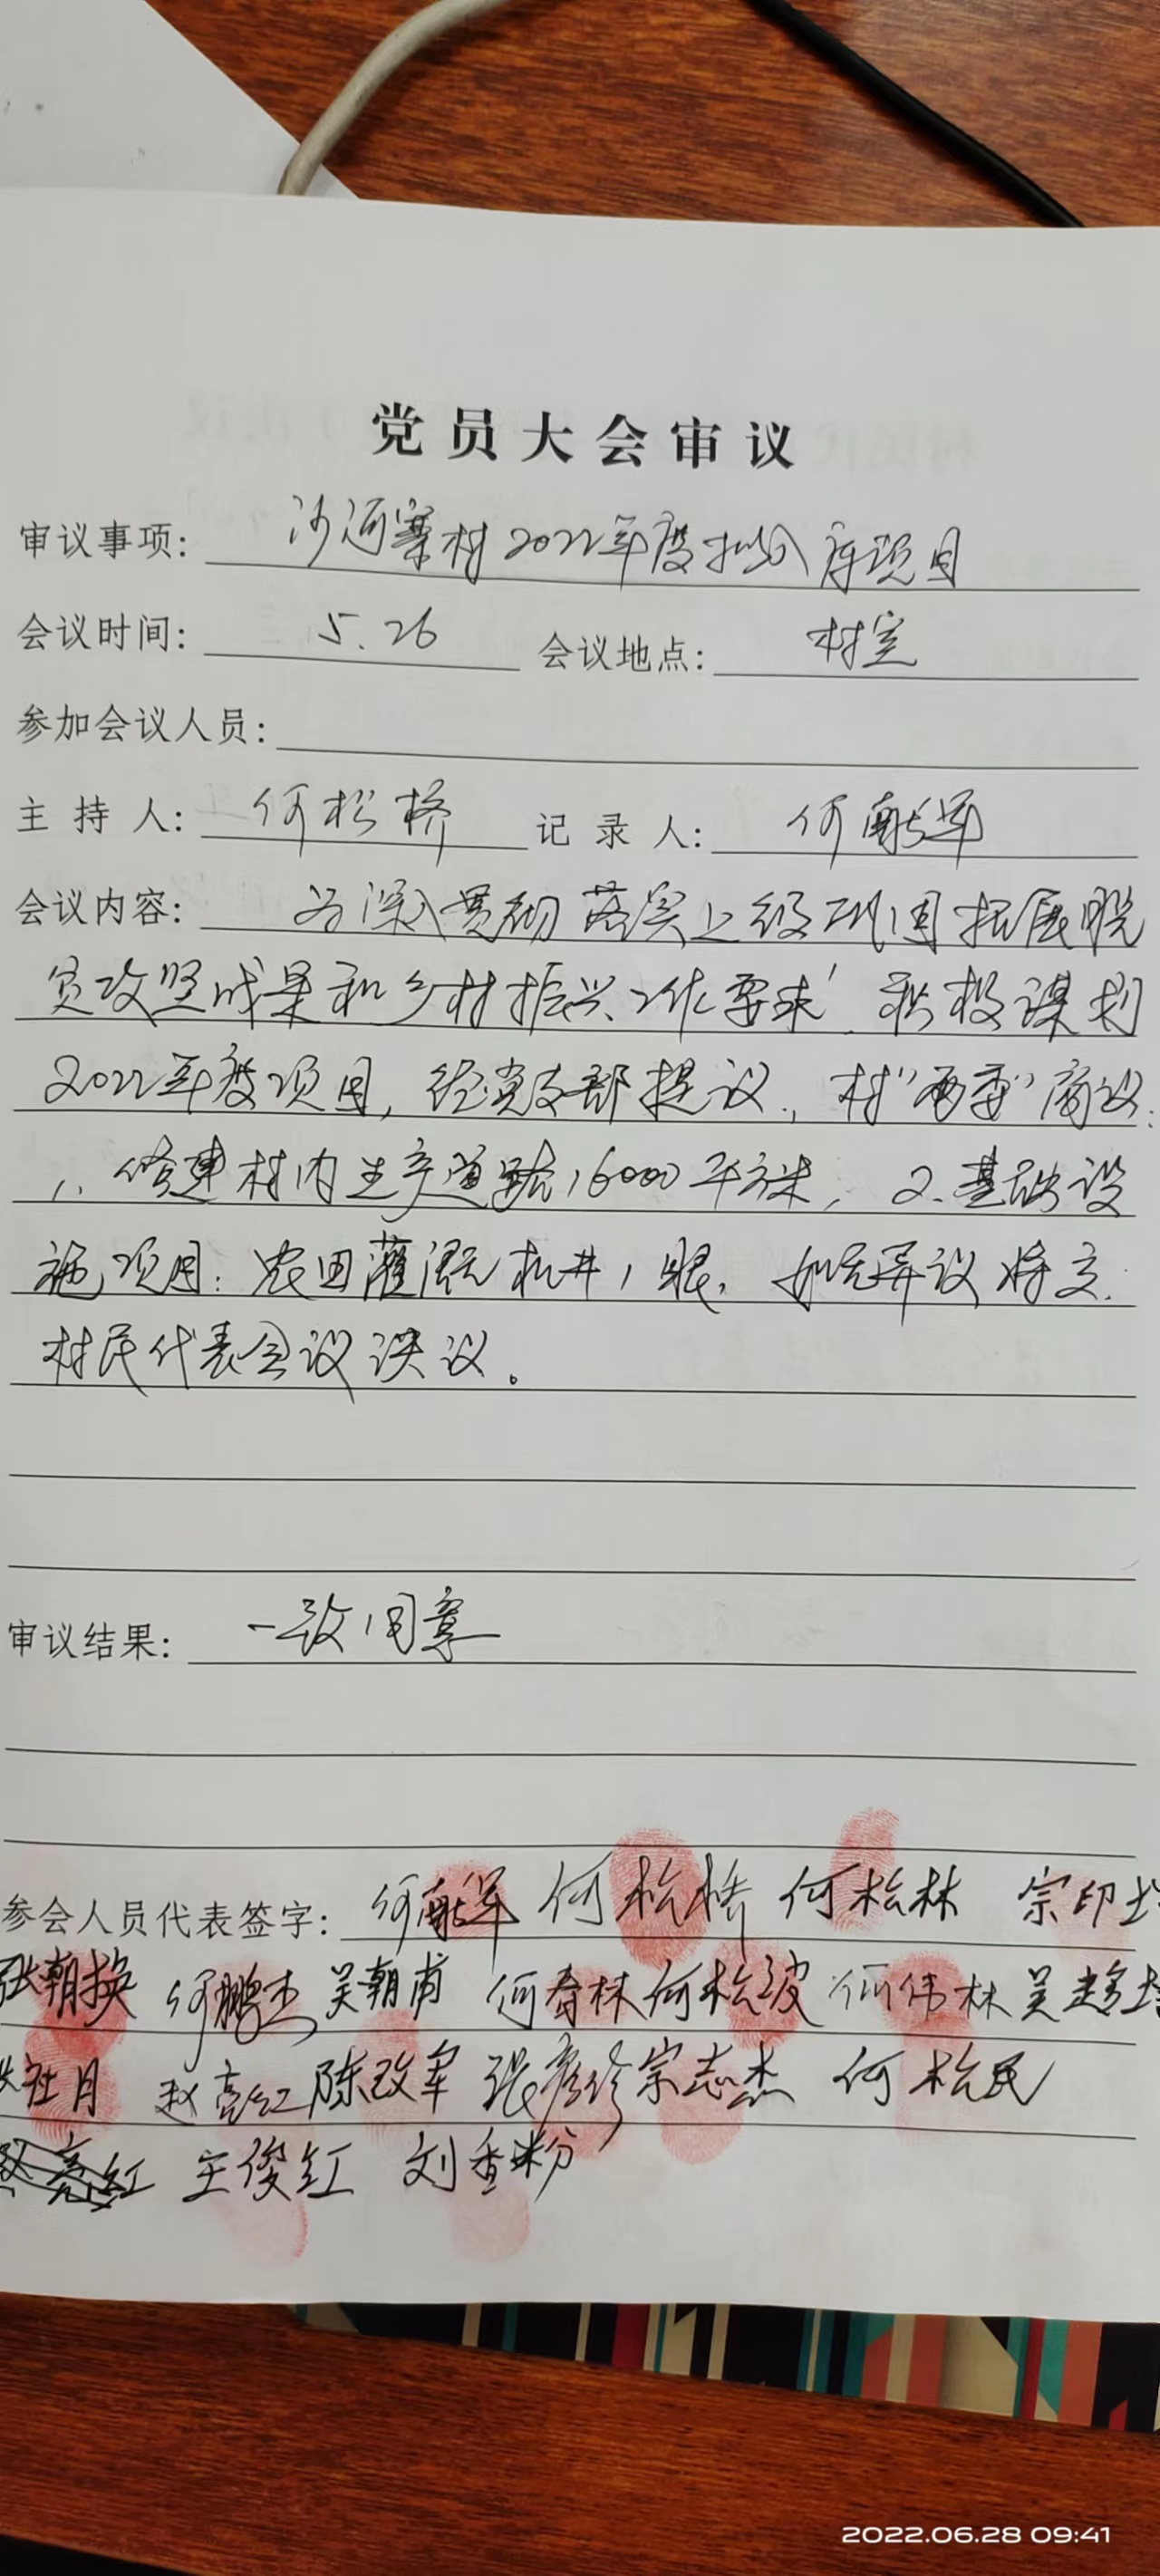 党员大会审议
审议事项: 沙河寨村2022年度拟入库项目
会议时间: 5.26 会议地点: 村室
参加会议人员:
主持人: 何松桥 记录人: 何献军
会议内容: 为深入贯彻落实上级巩固拓展脱
贫攻坚成果和乡村振兴工作要求, 积极谋划
2022年度项目, 经党支部提议, 村"两委"商议:
1、修建村内生产道路16000平方米, 2、基础设
施项目: 农田灌溉机井1眼, 如无异议将交
村民代表会议决议。
审议结果: 一致同意
参会人员代表签字: 何献军 何松桥 何松林 宗印
张朝换 何鹏杰 吴朝甫 何春林 何松波 何伟林 吴
社月 赵亮红 陈改军 张彦珍 宗志杰 何松民
亮红 王俊红 刘香粉
2022.06.28 09:41